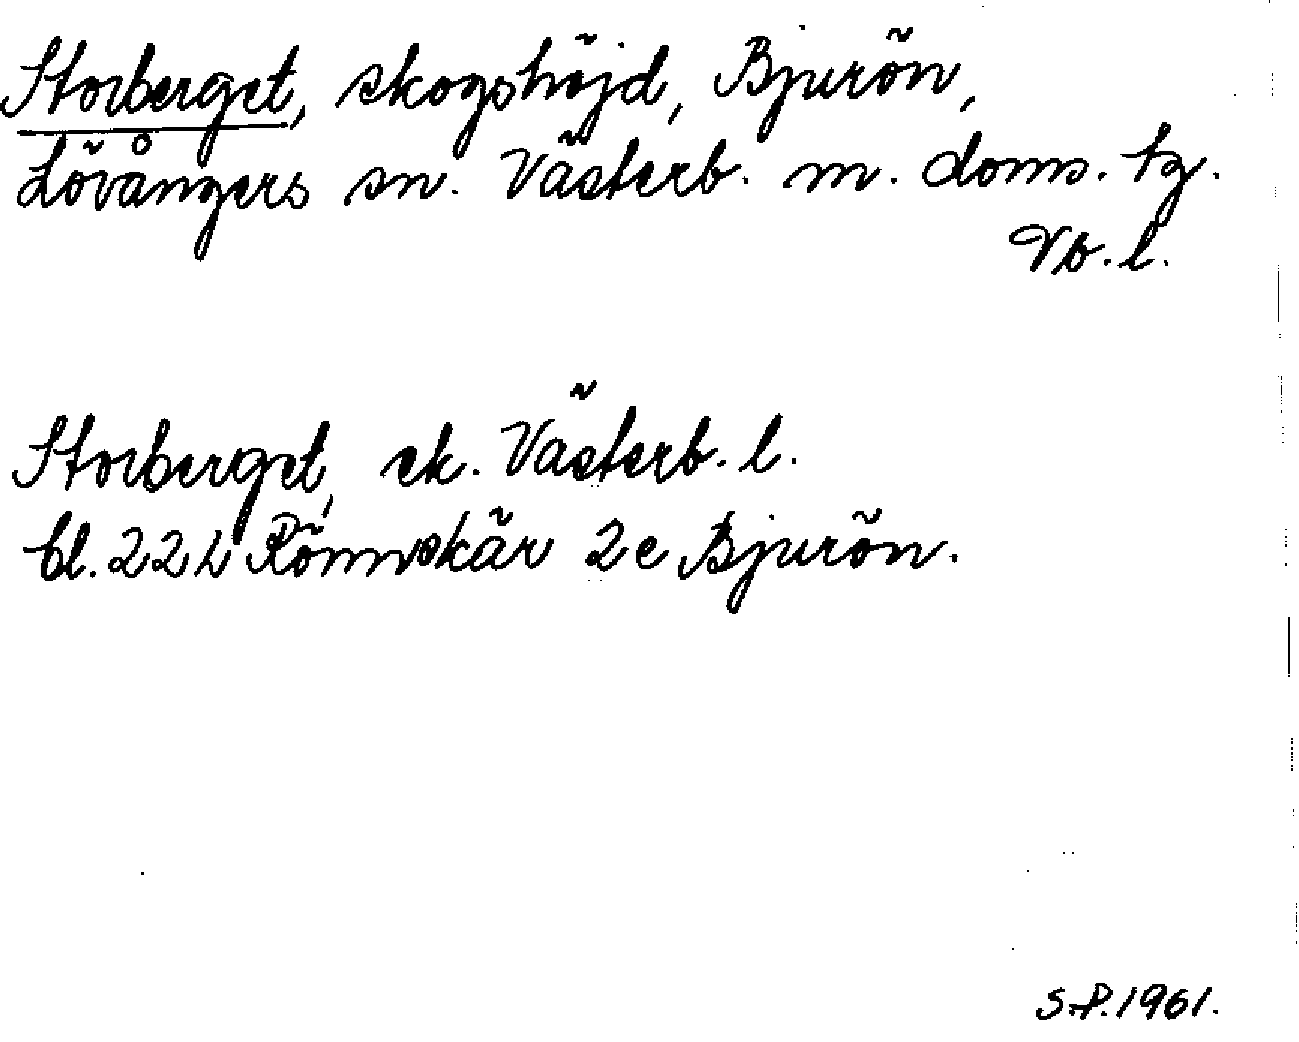 Storberget, skogshöjd, Bjurön,
Lövångers sn. Västerb. m. doms. tg.
Vb. l.
Storberget, ek. Västerb. l.
bl. 22 L Rönnskär 2e Bjurön.
S.P. 1961.